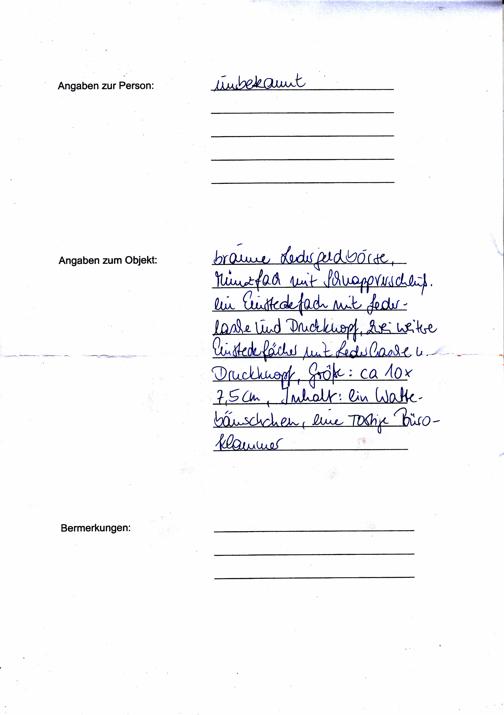 Angaben zur Person: unbekannt
Angaben zum Objekt: braune Ledergeldbörse,
Münzfach mit Schnappverschluß.
ein Einsteckfach mit Leder-
lasche und Druckknopf, zwei weitere
Einsteckfächer mit Lederlasche u.
Druckknopf, Größe: ca 10x
7,5cm, Inhalt: ein Watte-
bäuschchen, eine rostige Büro-
klammer
Bermerkungen: